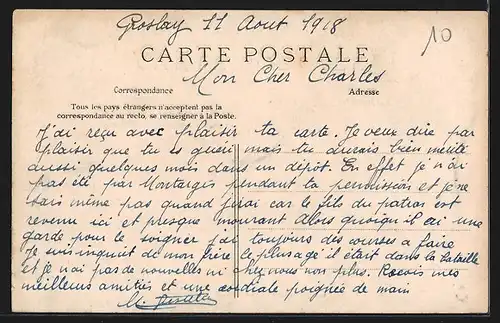 Groslay 11 Aout 1918
10
CARTE POSTALE
Mon Cher Charles
Correspondance
Adresse
Tous les pays étrangers n'acceptent pas la
correspondance au recto, se renseigner à la Poste.
J'ai reçu avec plaisir ta carte. Je veux dire par
plaisir que tu es guéri mais tu aurais bien mérité
aussi quelques mois dans un dépôt. En effet je n'ai
pas été par Montargis pendant ta permission et je ne
sais même pas quand j'irai car le fils du patron est
revenu ici et presque mourant Alors quoiqu'il ai une
garde pour le soigner j'ai toujours des courses a faire
Je suis inquiet de mon frère le plus agé il était dans la bataille
et je n'ai pas de nouvelles ni chez nous non plus. Reçois mes
meilleurs amitiés et une cordiale poignée de main